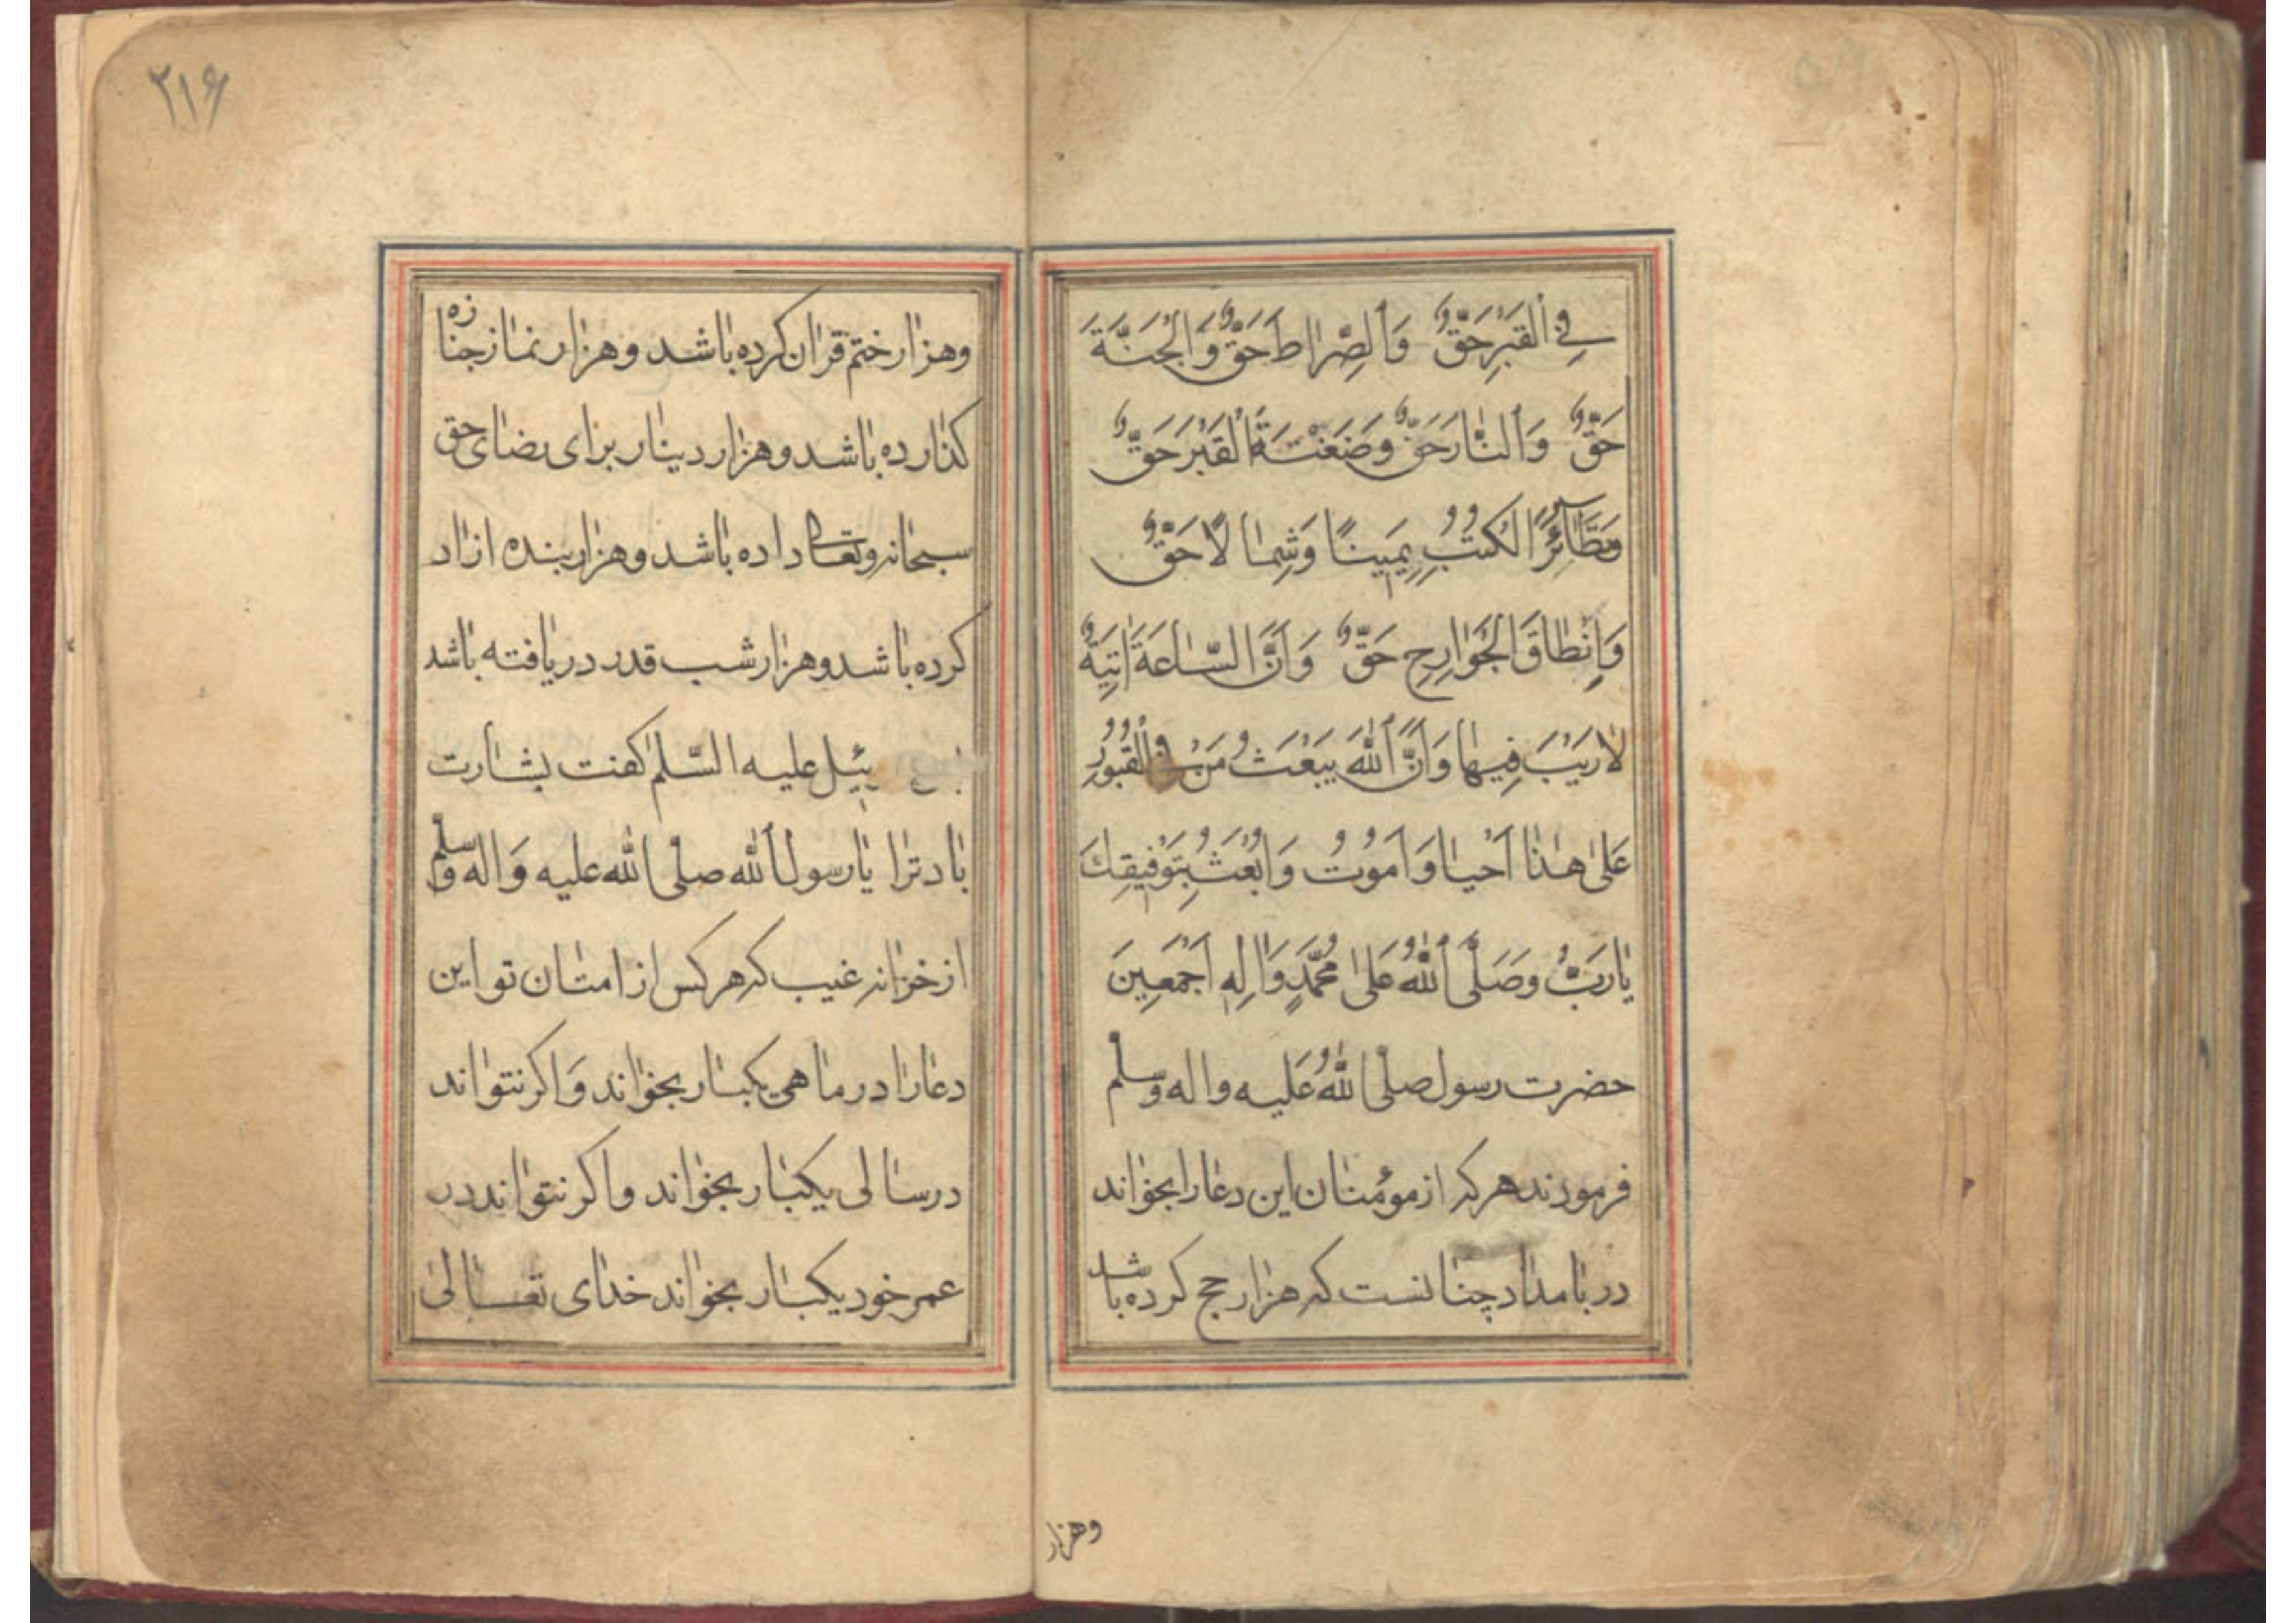 فِي الْقَبْرِ حَقٌّ وَالصِّرَاطَ حَقٌّ وَالْجَنَّةَ
حَقٌّ وَالنَّارَ حَقٌّ وَضَغْتَةَ الْقَبْرِ حَقٌّ
وَتَطَآئُرَ الْكُتُبِ يَمِينًا وَشِمَالًا حَقٌّ
وَاِنْطَاقَ الْجَوَارِحِ حَقٌّ وَاَنَّ السَّاعَةَ اٰتِيَةٌ
لَا رَيْبَ فِيهَا وَاَنَّ اللهَ يَبْعَثُ مَنْ فِي الْقُبُورِ
عَلىٰ هٰذَا اَحْيَا وَاَمُوتُ وَاُبْعَثُ بِتَوْفِيقِكَ
يَا رَبُّ وَصَلَّى اللهُ عَلىٰ مُحَمَّدٍ وَاٰلِهِ اَجْمَعِينَ
حضرت رسول صلّى اللهُ عَليه واله وسلم
فرمودند هركه از مؤمنان اين دعا را بخواند
در بامداد چنانست كه هزار حج كرده باشد
وهزار
٢١۶
وهزار ختم قران كرده باشد وهزار نماز جنازه
كذارده باشد وهزار دينار براى رضاى حق
سبحانه وتعالى داده باشد وهزار بنده ازاد
كرده باشد وهزار شب قدر دريافته باشد
ئيل عليه السّلم كفت بشارت
باد ترا يا رسول الله صلّى الله عليه وَاله وسلم
از خزانه غيب كه هركس از امتان تو اين
دعا را در ماهى يكبار بخواند وَاكر نتواند
در سالى يكبار بخواند واكر نتواند در
عمر خود يكبار بخواند خداى تعالىٰ